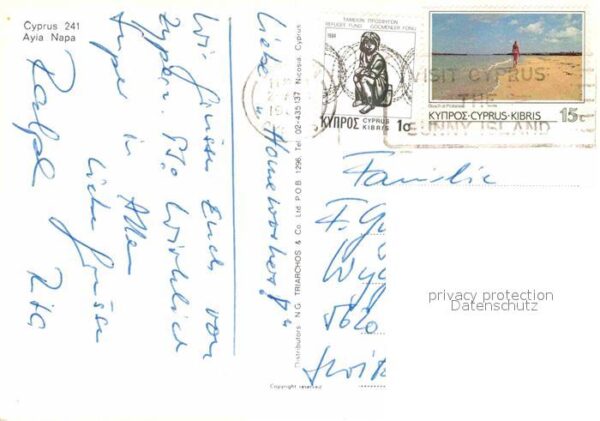 Cyprus 241
Ayia Napa
Liebe "Homeworkers!"
Wir grüssen Euch von
Zypern. Es wirklich
super in Allem
Liebe Grüsse
Ralph Rita
Distributors: N.G. TRIARCHOS & Co. Ltd. P.O.B. 1296, Tel. 02-435137, Nicosia, Cyprus
Copyright reserved
ΤΑΜΕΙΟΝ ΠΡΟΣΦΥΓΩΝ
REFUGEE FUND GÖÇMENLER FONU
1984
ΚΥΠΡΟΣ CYPRUS KIBRIS 1c
ΚΥΠΡΟΣ·CYPRUS·KIBRIS 15c
VISIT CYPRUS
THE
SUNNY ISLAND
Familie
F. Gu
Wy
5620
Switz
privacy protection
Datenschutz